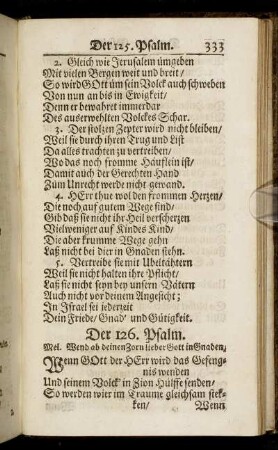 Der 125. Psalm. 333
2. Gleich wie Jerusalem ümgeben
Mit vielen Bergen weit und breit/
So wird GOtt üm sein Volck auch schweben
Von nun an bis in Ewigkeit/
Denn er bewahret immerdar
Des auserwehlten Volckes Schar.
3. Der stolzen Zepter wird nicht bleiben/
Weil sie durch ihren Trug und List
Da alles trachten zu vertreiben/
Wo das noch fromme Häuflein ist/
Damit auch der Gerechten Hand
Züm Unrecht werde nicht gewand.
4. HErr thue wol den frommen Herzen/
Die noch auf gutem Wege sind/
Gib daß sie nicht ihr Heil verscherzen
Vielweniger auf Kindes Kind/
Die aber krumme Wege gehn
Laß nicht bei dier in Gnaden stehn.
5. Vertreibe sie mit Übeltähtern
Weil sie nicht halten ihre Pflicht/
Laß sie nicht seyn bey unsern Vätern
Auch nicht vor deinem Angesicht;
In Israel sei jederzeit
Dein Friede/ Gnad' und Gütigkeit.
Der 126. Psalm.
Mel. Wend ab deinen Zorn lieber Gott in Gnaden/
Wenn GOtt der HErr wird das Gefeng-
nis wenden
Und seinem Volck' in Zion Hülffe senden/
So werden wier im Traume gleichsam stek-
ken/ Wenn